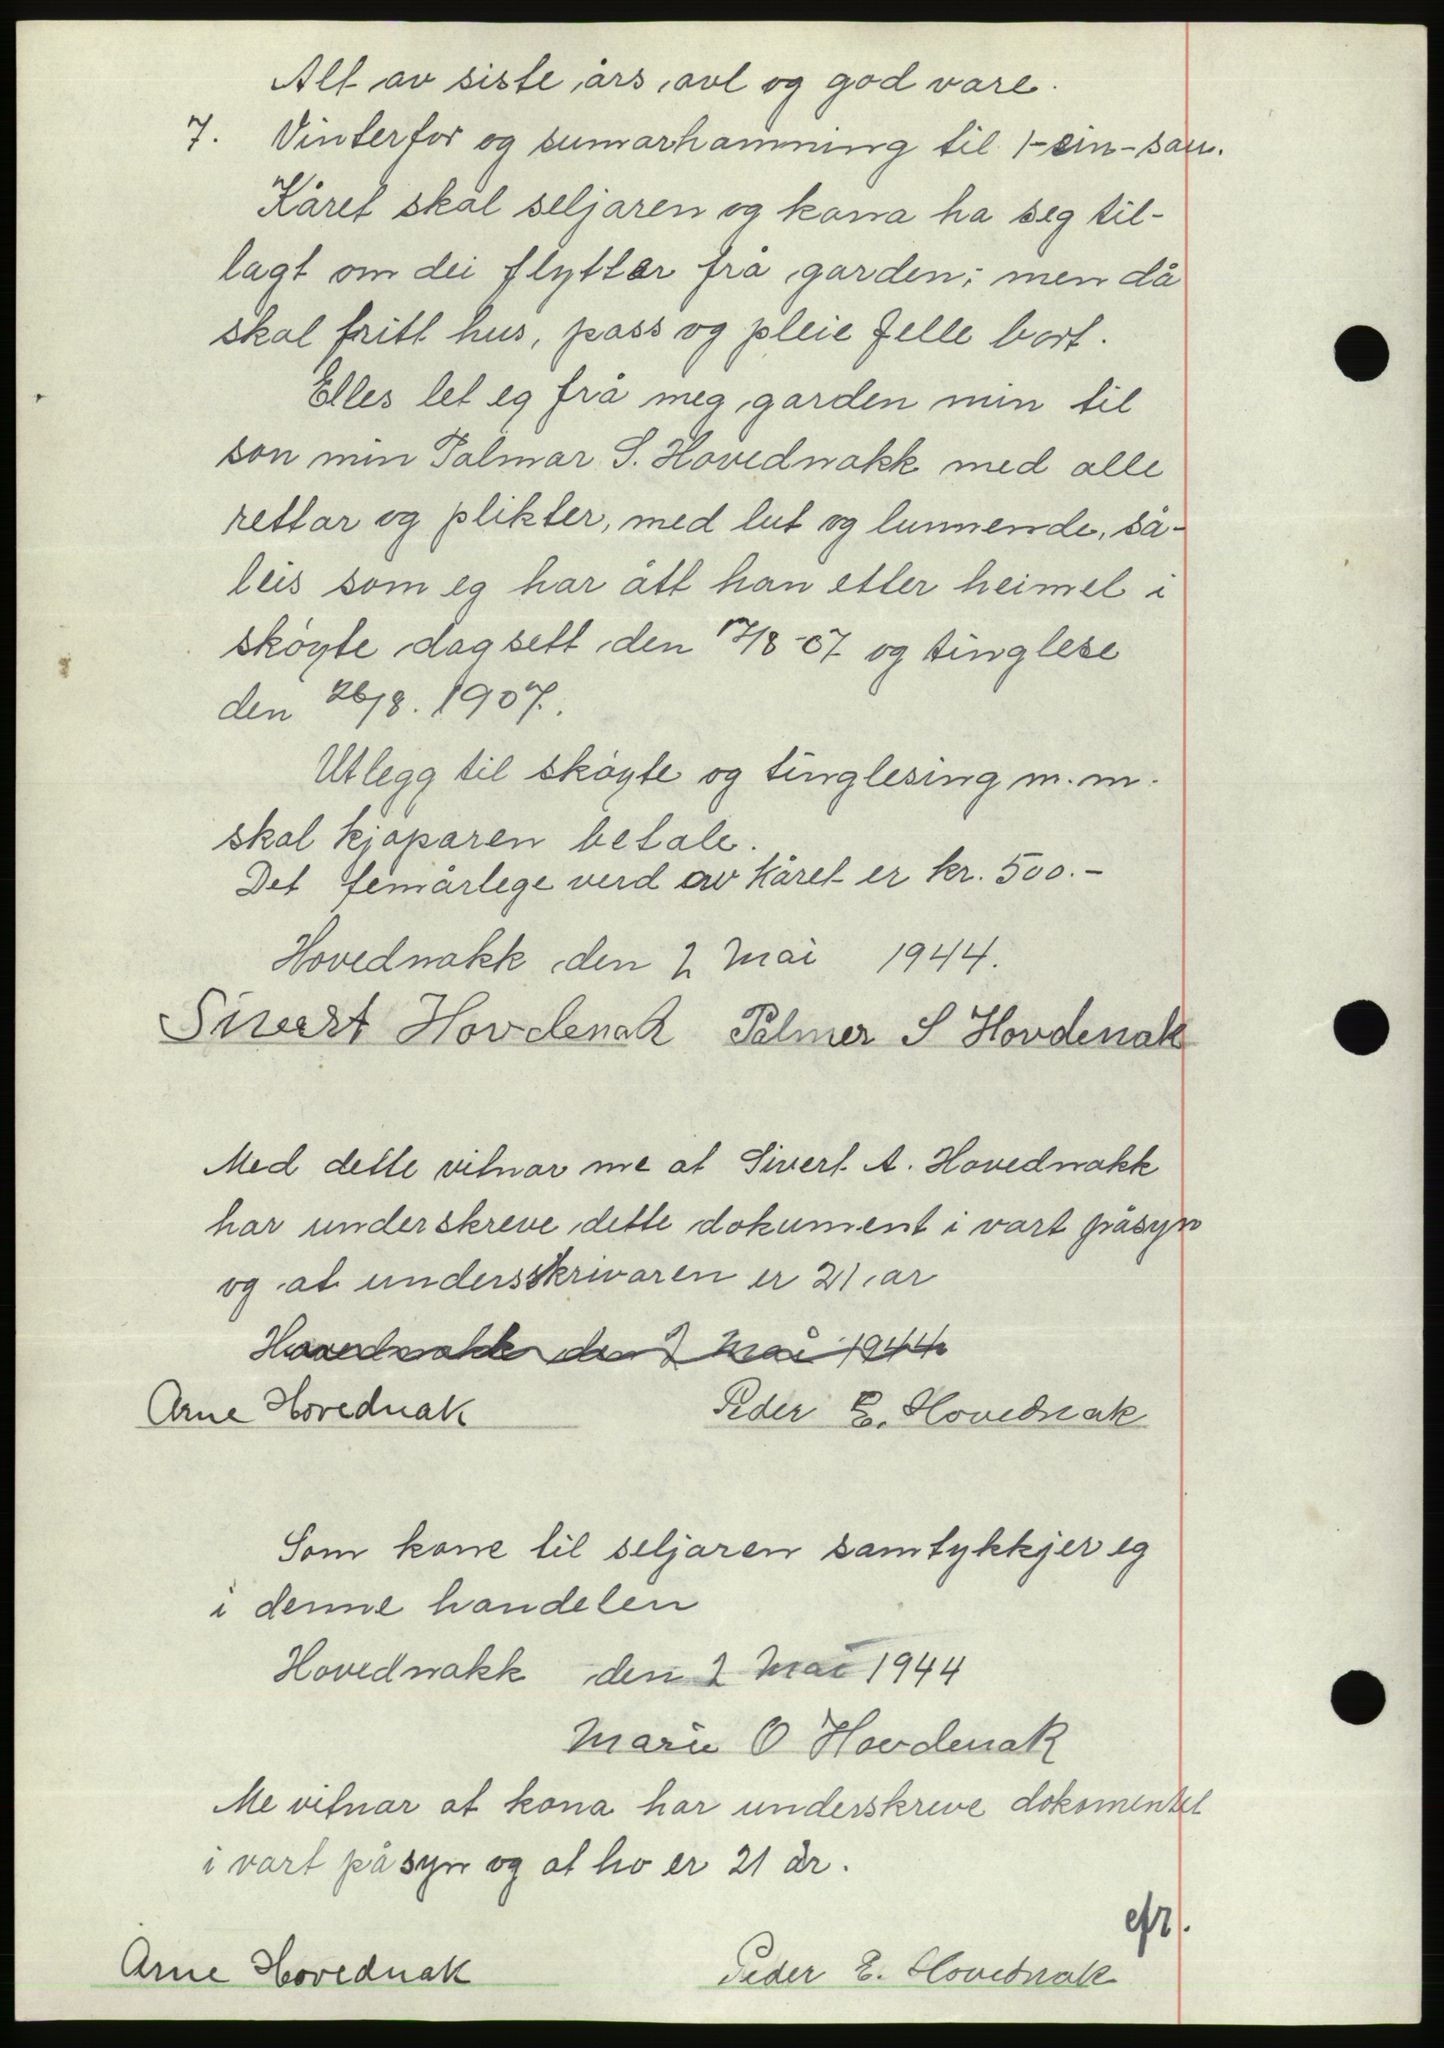 Alt av siste års avl og god vare.
7. Vinterfor og sumarhamning til 1-ein-sau.
Kåret skal seljaren og kona ha seg til-
lagt om dei flyttar frå garden; men då
skal fritt hus, pass og pleie felle bort.
Elles let eg frå meg garden min til
son min Palmar S. Hovednakk med alle
rettar og plikter, med lut og lunnende, så-
leis som eg har ått han etter heimel i
skøyte dagsett den 17/8-07 og tinglese
den 26/8. 1907.
Utlegg til skøyte og tinglesing m.m.
skal kjøparen betale.
Det femårlege verd av kåret er kr. 500.-
Hovednakk den 2 Mai 1944.
Sivert Hovdenak Palmer S Hovdenak
Med dette vitnar me at Sivert A. Hovednakk
har underskreve dette dokument i vart påsyn
og at undersskrivaren er 21 ar
Hovednakk den 2 Mai 1944
Arne Hovednak Peder E. Hovednak
Som kone til seljaren samtykkjer eg
i denne handelen
Hovednakk den 2 Mai 1944
Marie O Hovdenak
Me vitnar at kona har underskreve dokomentet
i vart påsyn og at ho er 21 år.
efr.
Arne Hovednak Peder E. Hovednak